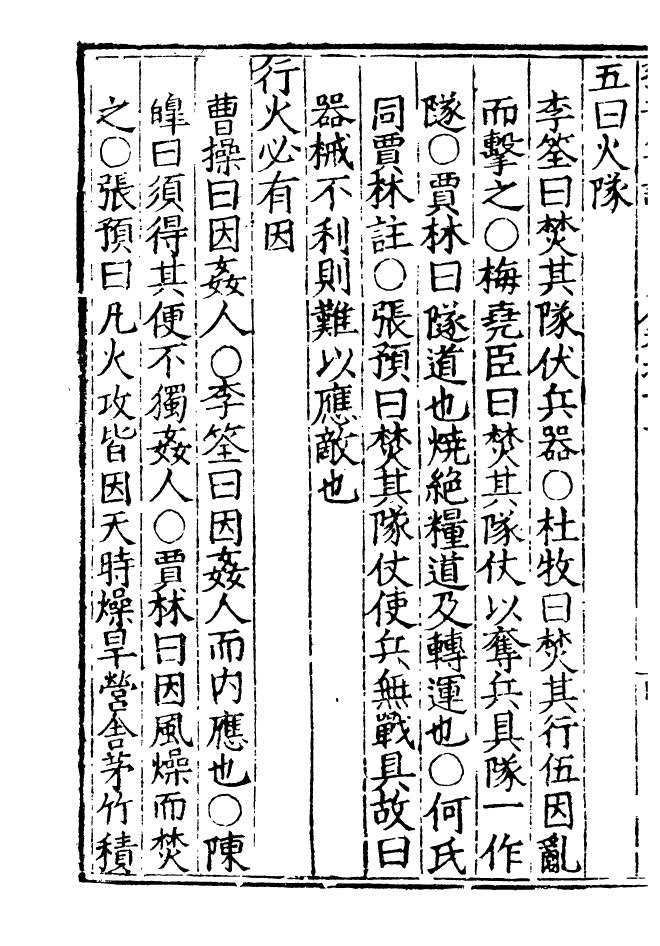 五曰火隊
李筌曰焚其隊伏兵器○杜牧曰焚其行伍因亂
而擊之○梅堯臣曰焚其隊仗以奪兵具隊一作
隧○賈林曰隧道也燒絶糧道及轉運也○何氏
同賈林註○張預曰焚其隊仗使兵無戰具故曰
器械不利則難以應敵也
行火必有因
曹操曰因姦人○李筌曰因姦人而内應也○陳
皥曰須得其便不獨姦人○賈林曰因風燥而焚
之○張預曰凡火攻皆因天時燥旱營舎茅竹積